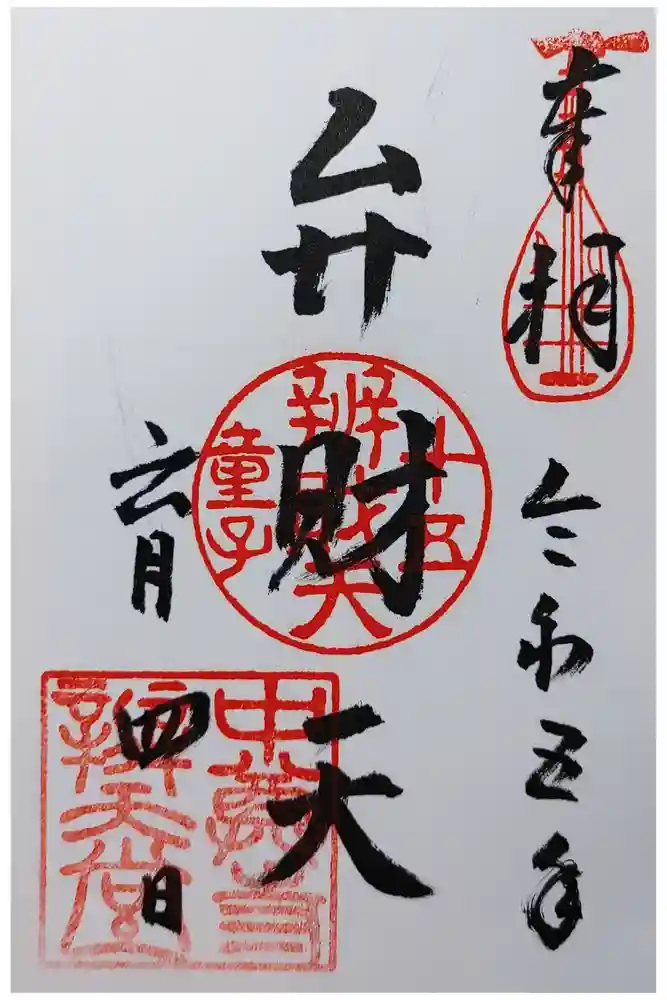 奉拝
令和五年
弁財天
十五
辨財天
童子
六月四日
辨天堂